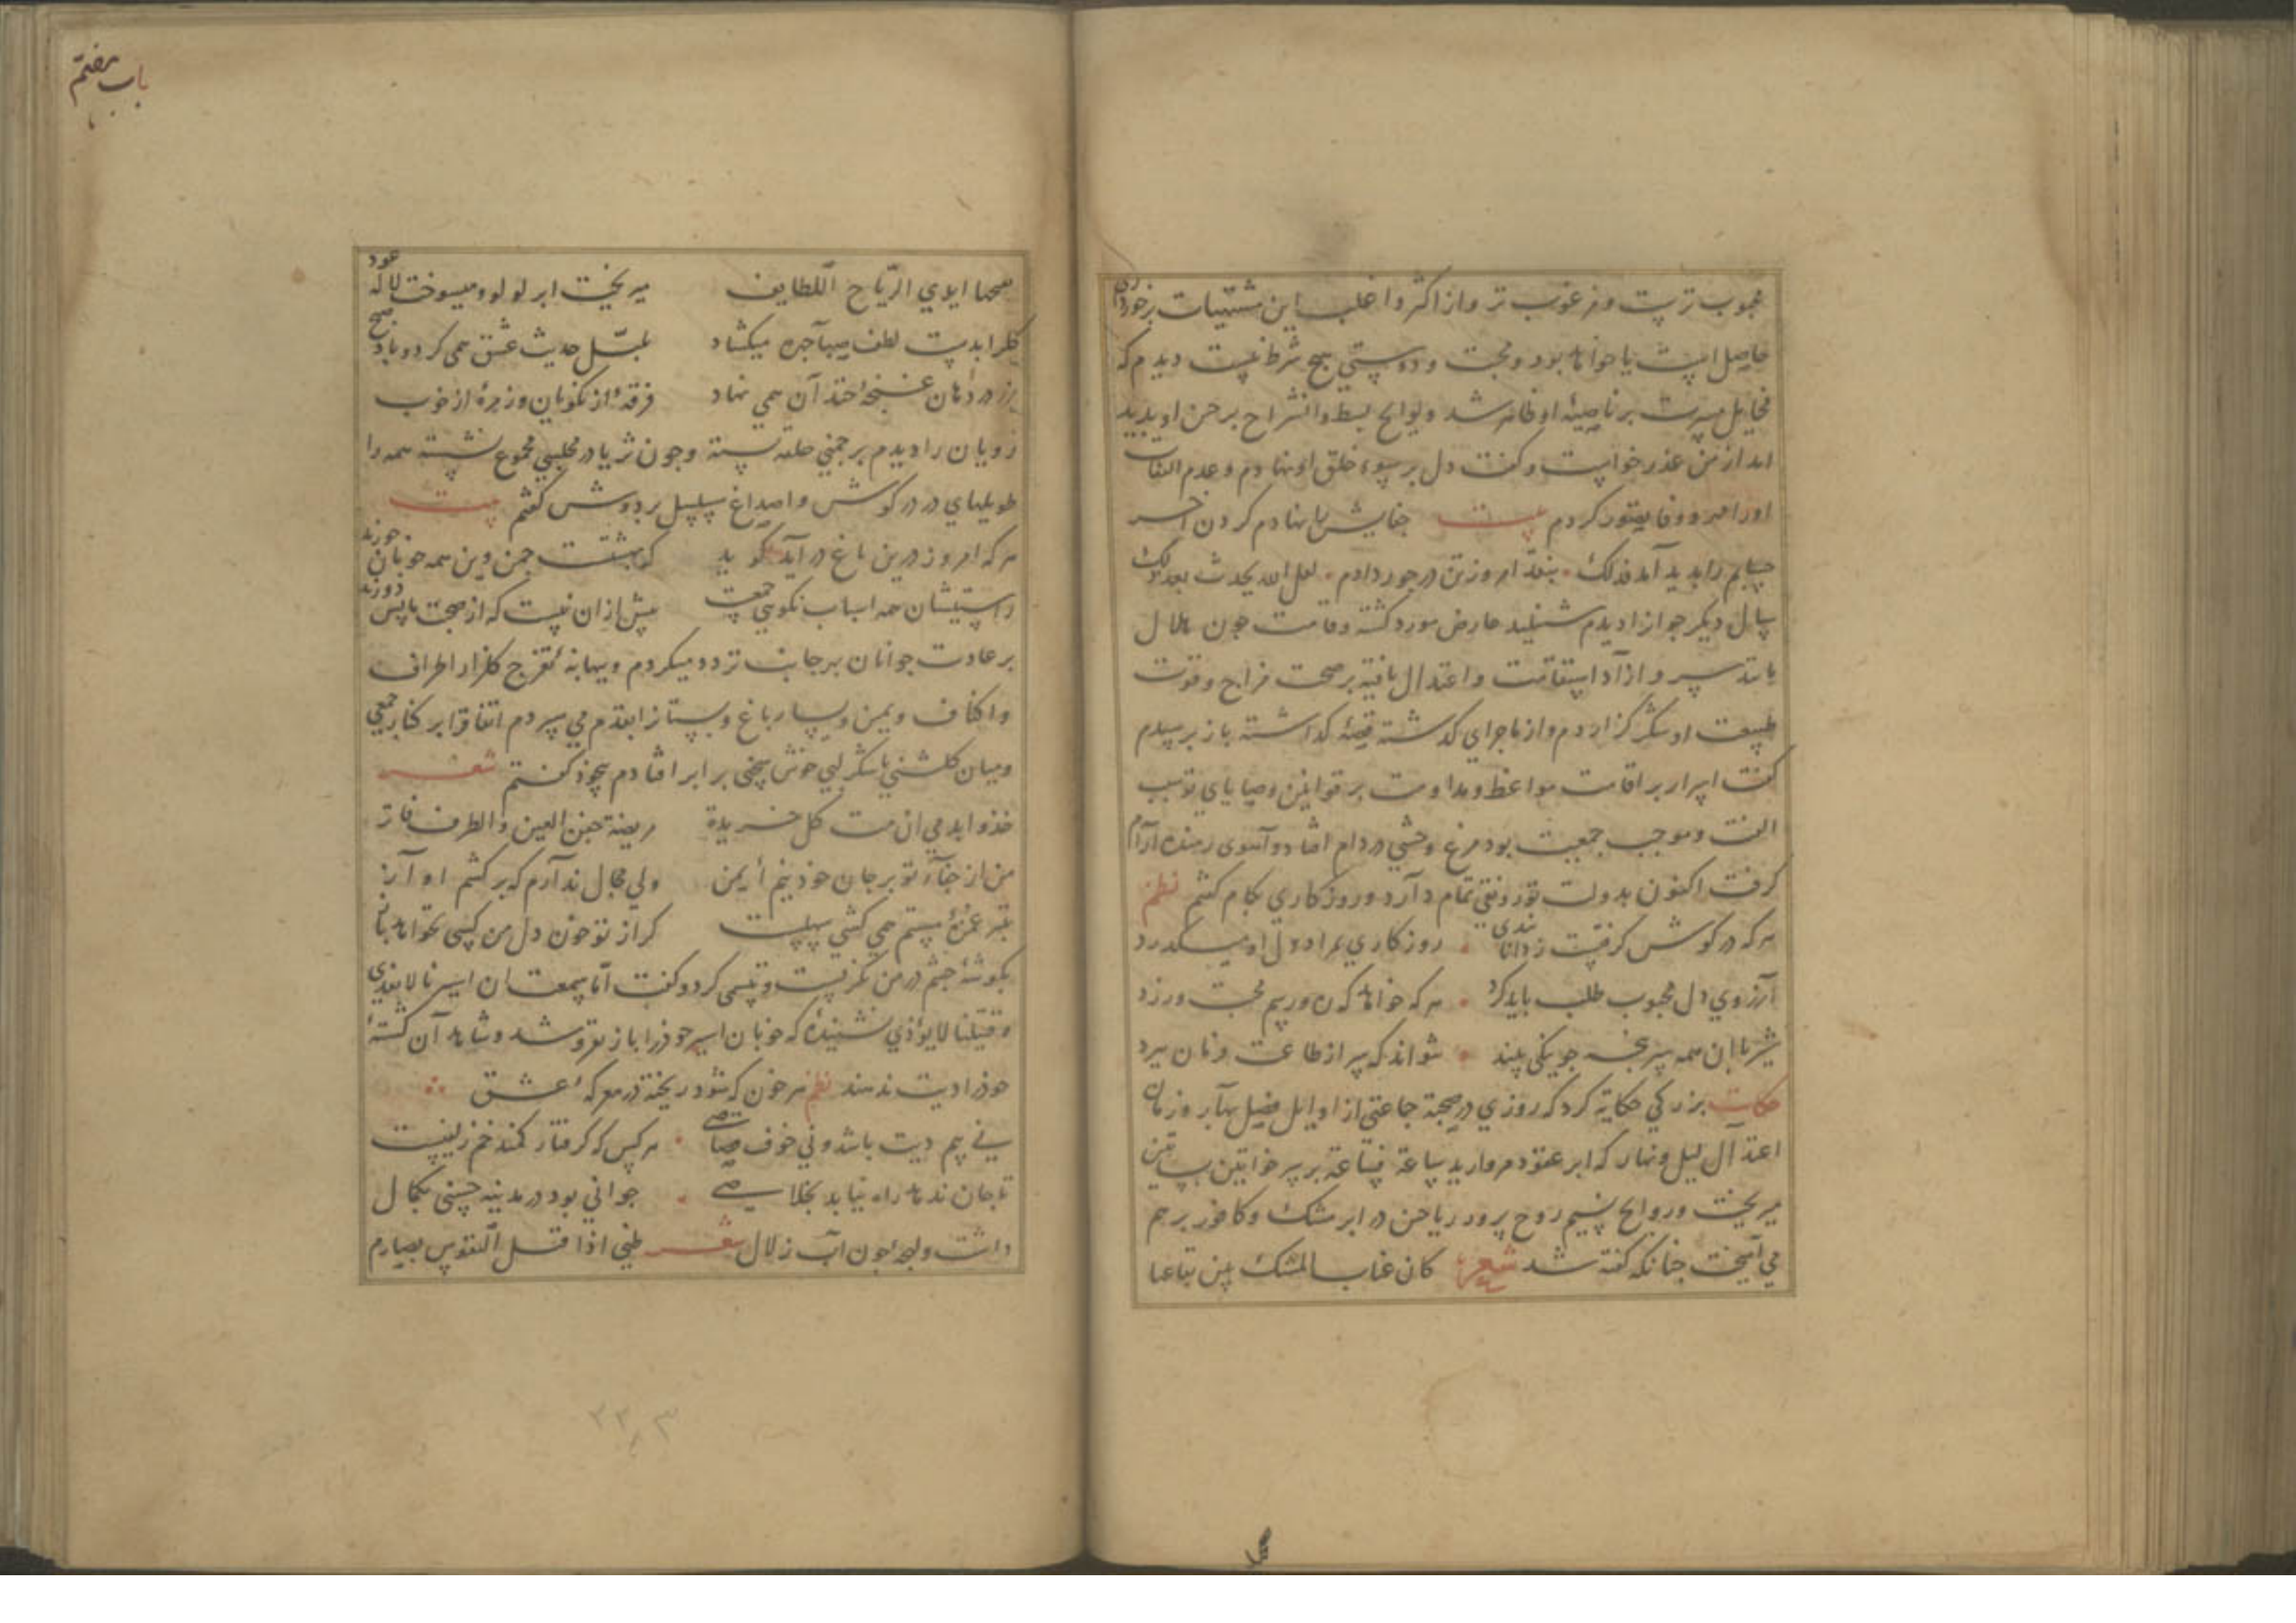 محبوب ترست و مرغوب تر و از اکثر و اغلب این مشتهیات برخورداری
حاصل است با خوانا بود و محبت و دوستی هیچ شرط نیست دیدم که
مخایل مسرت بر ناصیهٔ او ظاهر شد و لوایح بسط و انشراح بر حسن او پدید
امد از من عذر خواست و گفت دل بر سوء خلق او نهادم و عدم التفات
اورا مهر و وفا تصور کردم بیت جفایش را نهادم کردن آخر
حسابم را پدید آمد فذلک بنقد امروز تن در جور دادم لعل الله یحدث بعد ذلک
سال دیگر جوانرا دیدم شنبلید عارض مورد گشته و قامت چون هلال
مانند سرو آزاد استقامت و اعتدال یافته بر صحت مزاج و قوت
طبیعت او شکر گزاردم و از ماجرای گذشته قصهٔ گذاشته باز پرسیدم
گفت اسرار بر اقامت مواعظ و مداومت بر قوانین وصایای تو سبب
الفت و موجب جمعیت بود مرغ وحشی در دام افتاد و آهوی رمنده آرام
گرفت اکنون بدولت تو رونقی تمام دارد و روزگاری بکام گفتم نظم
هر که در گوش گرفت ز دانا پندی روزگاری بمراد دل او میگذرد
آرزوی دل محبوب طلب باید کرد هر که خواهد که ره و رسم محبت ورزد
شیر با آن همه سرپنجه چو نیکی بیند نتواند که سر از طاعت و نان ببرد
حکایت بزرکی حکایة کرد که روزی در صحبة جماعتی از اوایل فصل بهار و زمان
اعتدال لیل و نهار که ابر عقود مروارید ساعة فساعة بر سر خواتین بساتین
میریخت و روایح نسیم روح پرور ریاحین در ابر مشک و کافور بر هم
می آمیخت چنانکه گفته شد شعر کان غیاب المشک بین بقاعها
باب هفتم
یصحها ایدی الریاح اللطایف میریخت ابر لولو و میسوخت لاله عود
گلرا بدست لطف صبا چهره میکشاد بلبل حدیث عشق همی کرد و باد صبح
زر در دهان غنچهٔ خندان همی نهاد فرقهٔ از نکویان و زمرهٔ از خوب
رویان را دیدم بر چمنی حلقه بسته و چون ثریا در مجلسی مجموع نشسته همه را
طویلهای در در گوش و اصداغ سلسل بر دوش گفتم بیت
هر که امروز درین باغ درآید گوید که بهشتست چمن وین همه خوبان حورند
راستیشان همه اسباب نکویی جمعست بیش ازان نیست که از صحبت ما پس دورند
بر عادت جوانان بهر جانب تردد میکردم و ببهانهٔ تفرج گلزار اطراف
و اکناف و یمین و یسار باغ و بستانرا بقدم می سپردم اتفاقرا بر کنار جمعی
و میان گلشنی با شکر لبی خوش سخنی برابر افتادم بیخود گفتم شعر
خذوا بدمی ان مت کل خریدة مریضة جفن العین والطرف فاتر
من از جفای تو بر جان خود نیم ایمن ولی مجال ندارم که برکشم آواز
بتیر غمزهٔ مستم همی کشی سهلست گر از تو خون دل من کسی نخواهد باز
بگوشهٔ چشم در من نگریست و تبسمی کرد و گفت أما سمعت ان اسیرنا لا یفدی
و قتیلنا لا یؤدی نشنیدهٔ که خوبان اسیر خودرا باز نفروشند و شاهدان کشتهٔ
خودرا دیت ندهند نظم هر خون که شود ریخته در معرکهٔ عشق
نی بیم دیت باشد و نی خوف قصاصی هر کس که گرفتار کمند خم زلفیست
تا جان ندهد راه نیابد بخلاصی جوانی بود در مدینه حسنی بکمال
داشت و لهجهٔ چون آب زلال شعر ظبی اذا قتل النفوس بصارم